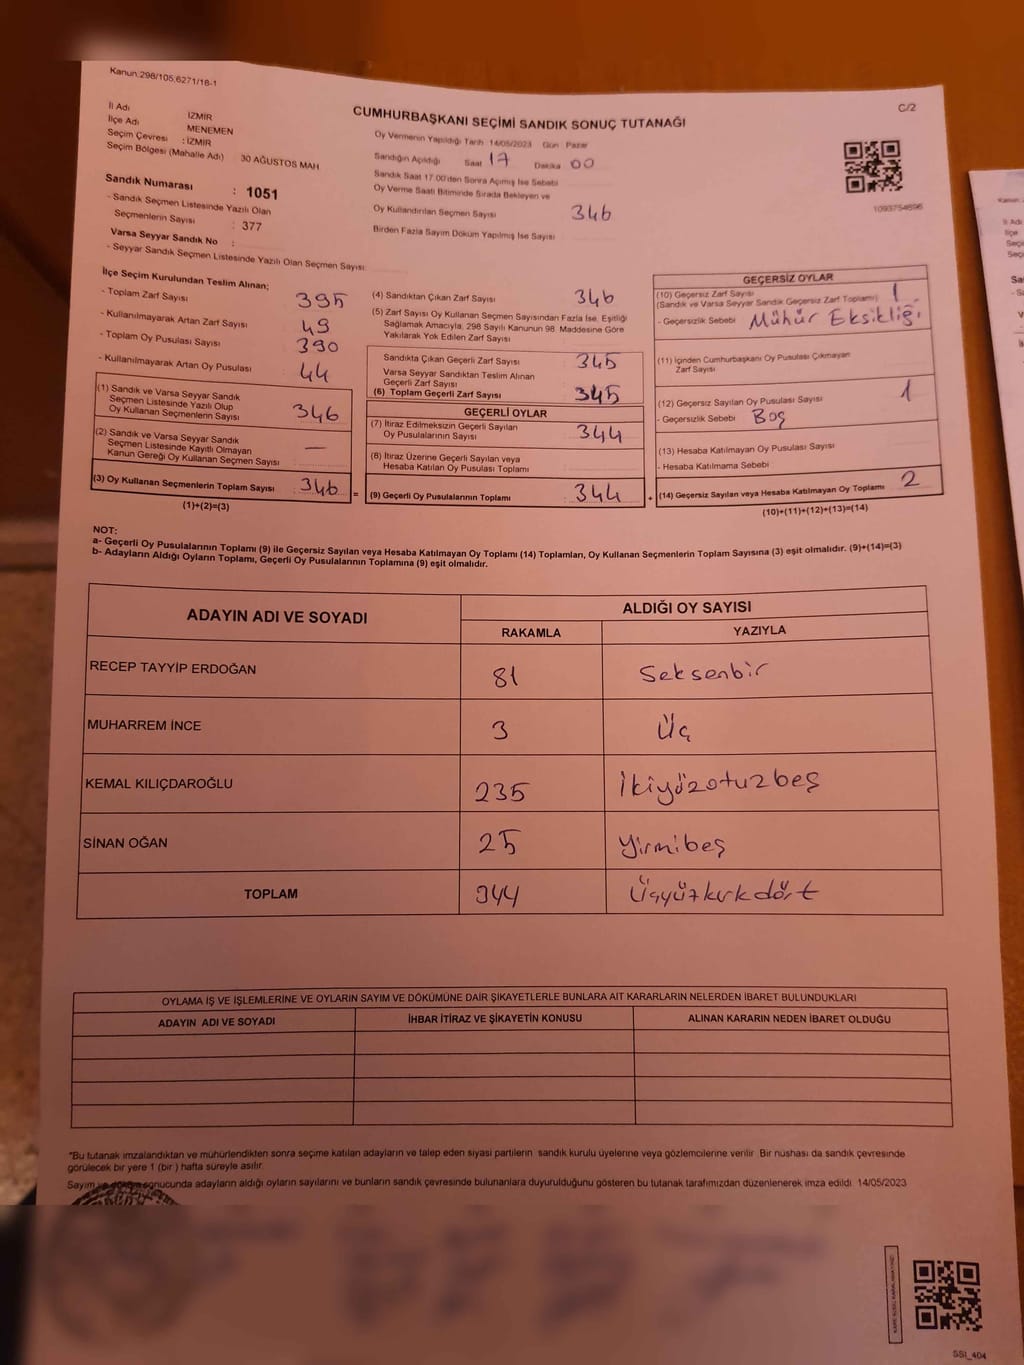 Kanun:298/105;6271/18-1
C/2
İl Adı İZMİR
İlçe Adı MENEMEN
Seçim Çevresi : İZMİR
Seçim Bölgesi (Mahalle Adı) 30 AĞUSTOS MAH
Sandık Numarası : 1051
- Sandık Seçmen Listesinde Yazılı Olan
Seçmenlerin Sayısı : 377
Varsa Seyyar Sandık No :
- Seyyar Sandık Seçmen Listesinde Yazılı Olan Seçmen Sayısı:
CUMHURBAŞKANI SEÇİMİ SANDIK SONUÇ TUTANAĞI
Oy Vermenin Yapıldığı Tarih 14/05/2023 Gün Pazar
Sandığın Açıldığı Saat 17 Dakika 00
Sandık Saat 17.00'den Sonra Açılmış İse Sebebi
Oy Verme Saati Bitiminde Sırada Bekleyen ve
Oy Kullandırılan Seçmen Sayısı 346
Birden Fazla Sayım Döküm Yapılmış İse Sayısı
1093754696
İlçe Seçim Kurulundan Teslim Alınan;
- Toplam Zarf Sayısı 395
- Kullanılmayarak Artan Zarf Sayısı 49
- Toplam Oy Pusulası Sayısı 390
- Kullanılmayarak Artan Oy Pusulası 44
(1) Sandık ve Varsa Seyyar Sandık
Seçmen Listesinde Yazılı Olup
Oy Kullanan Seçmenlerin Sayısı 346
(2) Sandık ve Varsa Seyyar Sandık
Seçmen Listesinde Kayıtlı Olmayan
Kanun Gereği Oy Kullanan Seçmen Sayısı —
(3) Oy Kullanan Seçmenlerin Toplam Sayısı 346 =
(1)+(2)=(3)
(4) Sandıktan Çıkan Zarf Sayısı 346
(5) Zarf Sayısı Oy Kullanan Seçmen Sayısından Fazla İse, Eşitliği
Sağlamak Amacıyla, 298 Sayılı Kanunun 98. Maddesine Göre
Yakılarak Yok Edilen Zarf Sayısı
Sandıkta Çıkan Geçerli Zarf Sayısı 345
Varsa Seyyar Sandıktan Teslim Alınan
Geçerli Zarf Sayısı
(6) Toplam Geçerli Zarf Sayısı 345
GEÇERLİ OYLAR
(7) İtiraz Edilmeksizin Geçerli Sayılan
Oy Pusulalarının Sayısı 344
(8) İtiraz Üzerine Geçerli Sayılan veya
Hesaba Katılan Oy Pusulası Toplamı
(9) Geçerli Oy Pusulalarının Toplamı 344 +
GEÇERSİZ OYLAR
(10) Geçersiz Zarf Sayısı 1
(Sandık ve Varsa Seyyar Sandık Geçersiz Zarf Toplamı)
- Geçersizlik Sebebi Mühür Eksikliği
(11) İçinden Cumhurbaşkanı Oy Pusulası Çıkmayan
Zarf Sayısı
(12) Geçersiz Sayılan Oy Pusulası Sayısı 1
- Geçersizlik Sebebi Boş
(13) Hesaba Katılmayan Oy Pusulası Sayısı
- Hesaba Katılmama Sebebi
(14) Geçersiz Sayılan veya Hesaba Katılmayan Oy Toplamı 2
(10)+(11)+(12)+(13)=(14)
NOT:
a- Geçerli Oy Pusulalarının Toplamı (9) ile Geçersiz Sayılan veya Hesaba Katılmayan Oy Toplamı (14) Toplamları, Oy Kullanan Seçmenlerin Toplam Sayısına (3) eşit olmalıdır. (9)+(14)=(3)
b- Adayların Aldığı Oyların Toplamı, Geçerli Oy Pusulalarının Toplamına (9) eşit olmalıdır.
ADAYIN ADI VE SOYADI ALDIĞI OY SAYISI
RAKAMLA YAZIYLA
RECEP TAYYİP ERDOĞAN 81 Seksenbir
MUHARREM İNCE 3 Üç
KEMAL KILIÇDAROĞLU 235 İkiyüzotuzbeş
SİNAN OĞAN 25 Yirmibeş
TOPLAM 344 Üçyüzkırkdört
OYLAMA İŞ VE İŞLEMLERİNE VE OYLARIN SAYIM VE DÖKÜMÜNE DAİR ŞİKAYETLERLE BUNLARA AİT KARARLARIN NELERDEN İBARET BULUNDUKLARI
ADAYIN ADI VE SOYADI İHBAR İTİRAZ VE ŞİKAYETİN KONUSU ALINAN KARARIN NEDEN İBARET OLDUĞU
*Bu tutanak imzalandıktan ve mühürlendikten sonra seçime katılan adayların ve talep eden siyasi partilerin sandık kurulu üyelerine veya gözlemcilerine verilir Bir nüshası da sandık çevresinde
görülecek bir yere 1 (bir ) hafta süreyle asılır
Sayım ve döküm sonucunda adayların aldığı oyların sayılarını ve bunların sandık çevresinde bulunanlara duyurulduğunu gösteren bu tutanak tarafımızdan düzenlenerek imza edildi 14/05/2023
SSI_404